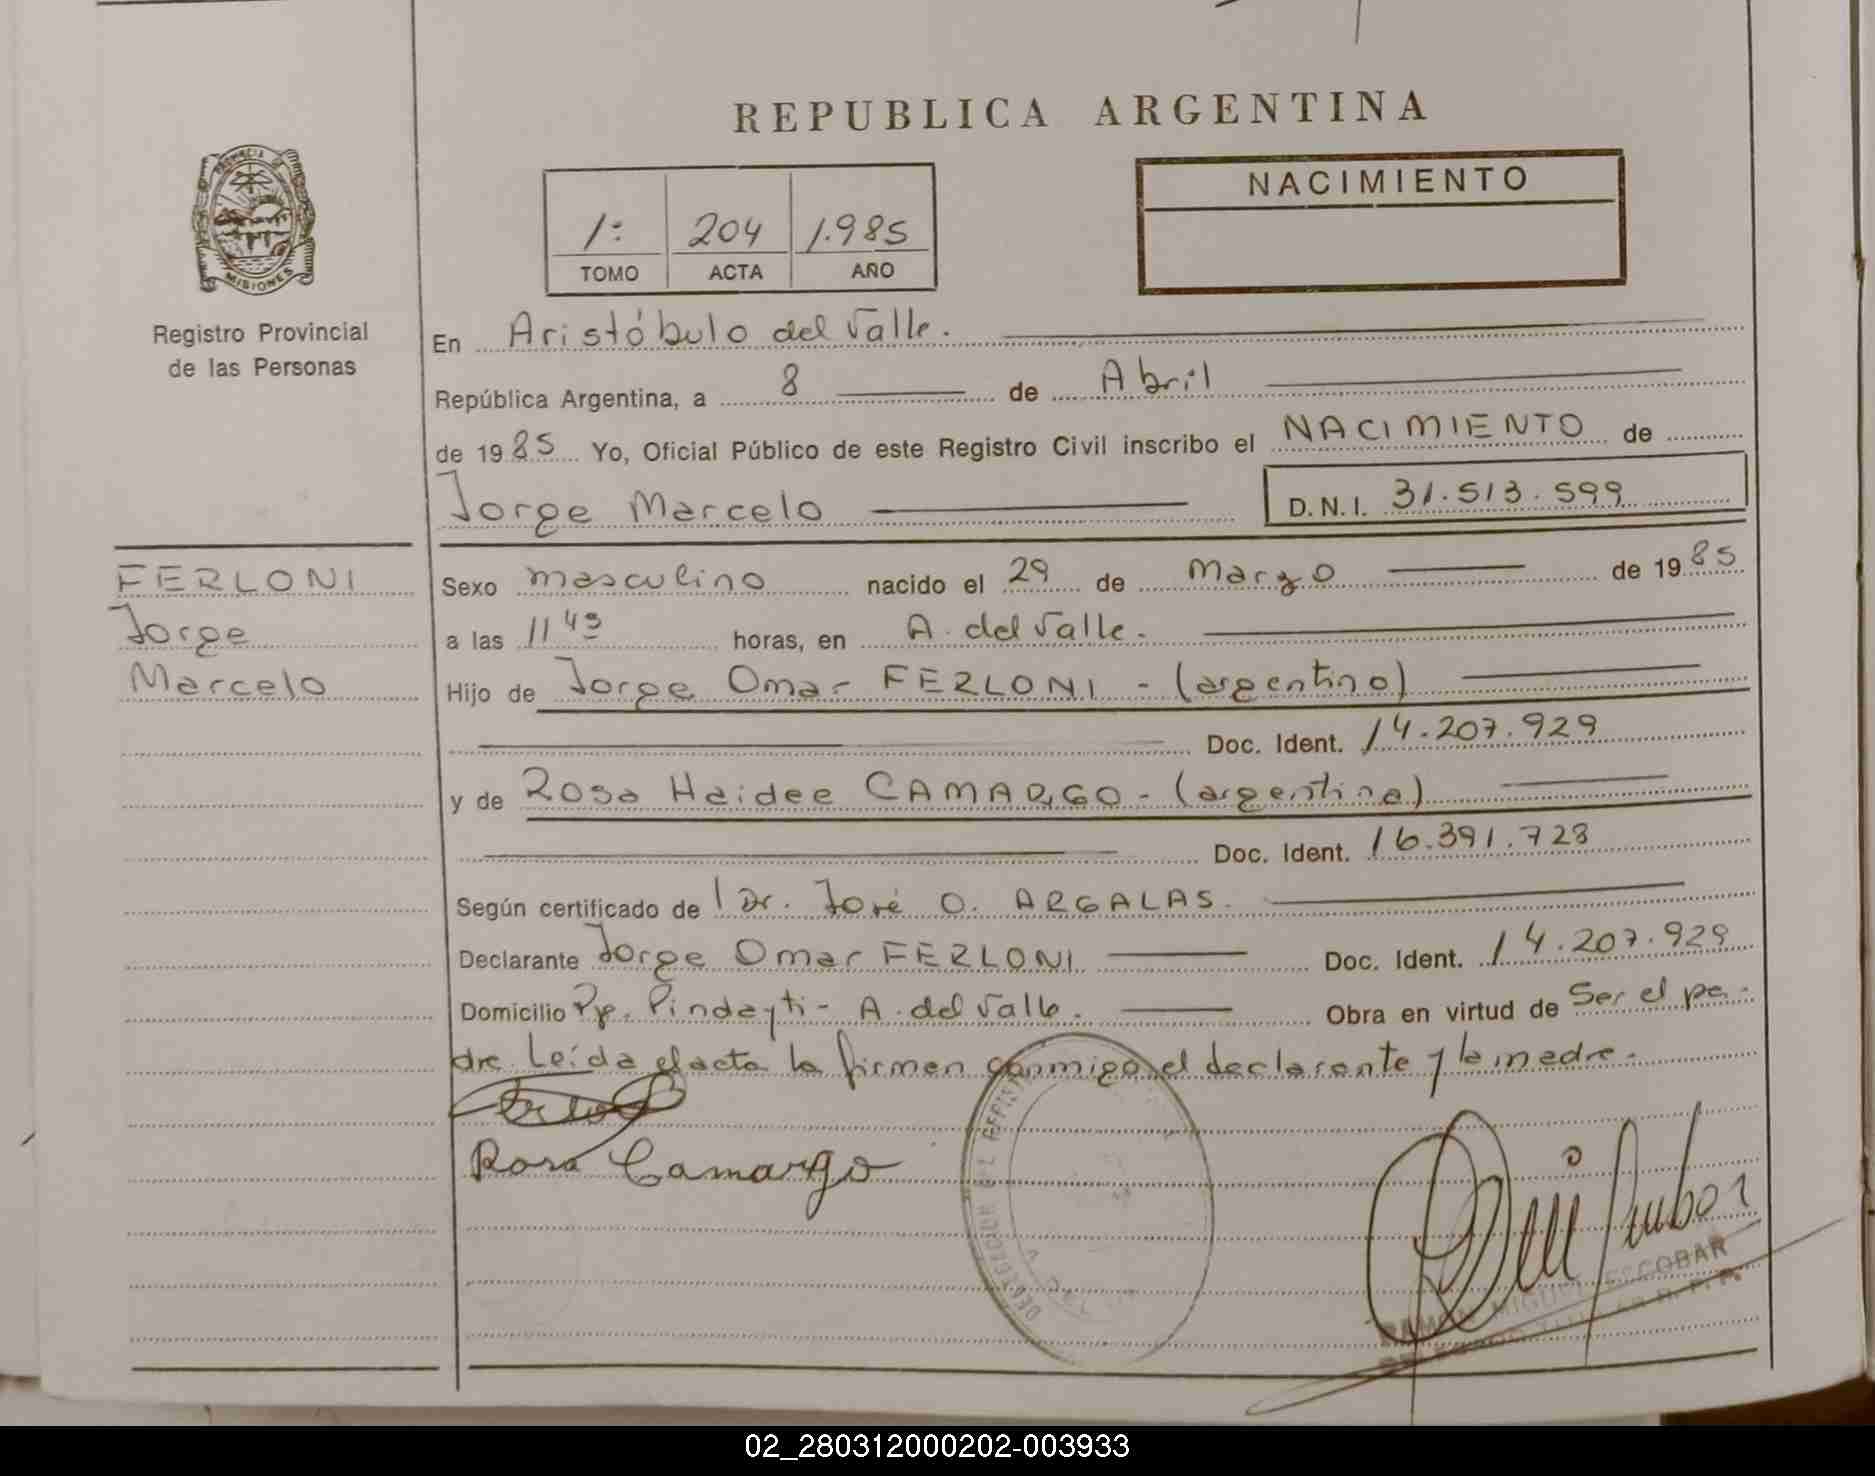 REPUBLICA ARGENTINA
PROVINCIA DE
MISIONES
Registro Provincial
de las Personas
1: 204 1.985
TOMO ACTA AÑO
NACIMIENTO
En Aristóbulo del Valle.
República Argentina, a 8 de Abril
de 1985 Yo, Oficial Público de este Registro Civil inscribo el NACIMIENTO de
Jorge Marcelo D.N.I. 31.513.599
FERLONI
Jorge
Marcelo
Sexo masculino nacido el 29 de Marzo de 1985
a las 11 45 horas, en A. del Valle.
Hijo de Jorge Omar FERLONI - (argentino)
Doc. Ident. 14.207.929
y de Rosa Haidee CAMARGO - (argentina)
Doc. Ident. 16.391.728
Según certificado de l Dr. José O. ARGALAS.
Declarante Jorge Omar FERLONI Doc. Ident. 14.207.929
Domicilio Pje. Pindayti - A. del Valle. Obra en virtud de Ser el pa-
dre. Leída el acta la firman conmigo el declarante y la madre.
Rosa Camargo
RAMON MIGUEL ESCOBAR
02_280312000202-003933